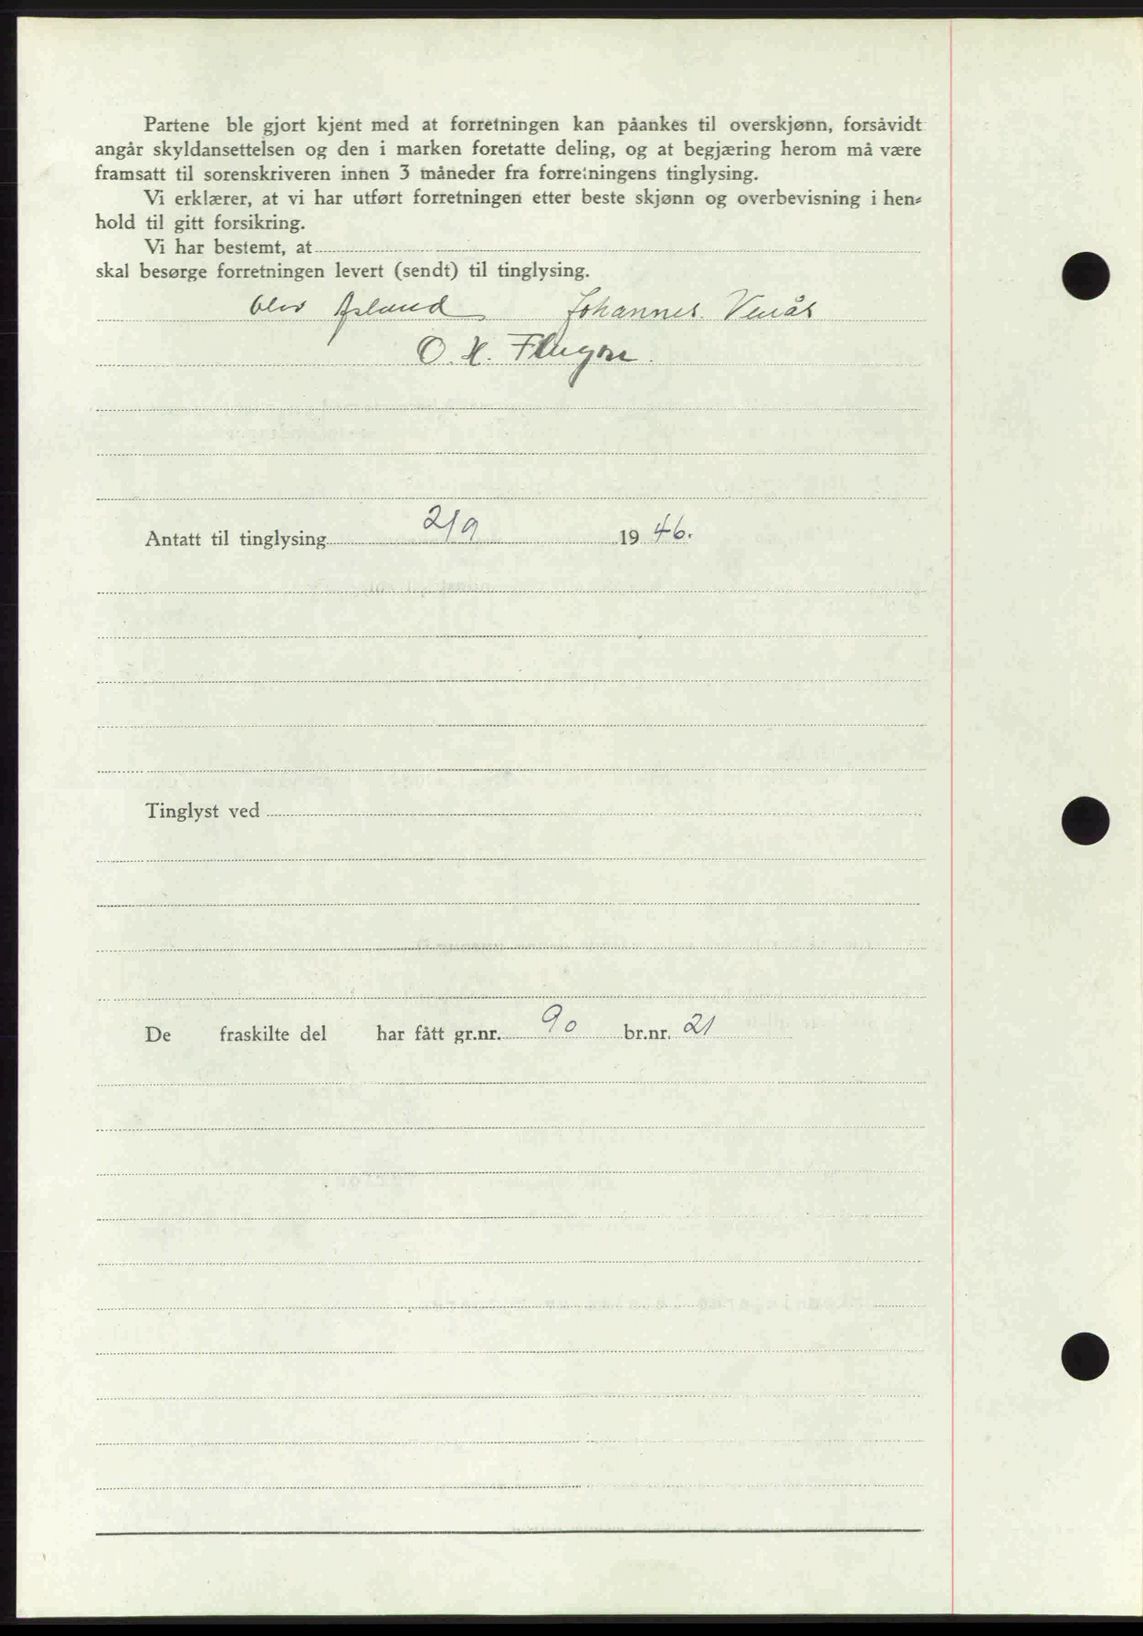 Partene ble gjort kjent med at forretningen kan påankes til overskjønn, forsåvidt
angår skyldansettelsen og den i marken foretatte deling, og at begjæring herom må være
framsatt til sorenskriveren innen 3 måneder fra forretningens tinglysing.
Vi erklærer, at vi har utført forretningen etter beste skjønn og overbevisning i hen-
hold til gitt forsikring.
Vi har bestemt, at
skal besørge forretningen levert (sendt) til tinglysing.
Olav Johannes Venås
O. H.
Antatt til tinglysing 2/9 1946.
Tinglyst ved
De fraskilte del har fått gr.nr. 90 br.nr. 21